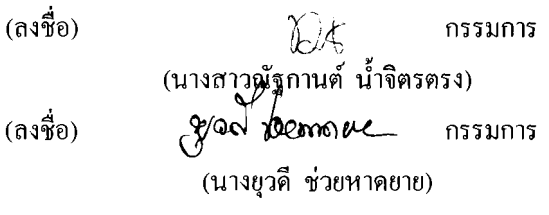 (ลงชื่อ) กรรมการ
(นางสาวณัฐกานต์ น้ำจิตรตรง)
(ลงชื่อ) กรรมการ
(นางยุวดี ช่วยหาดยาย)